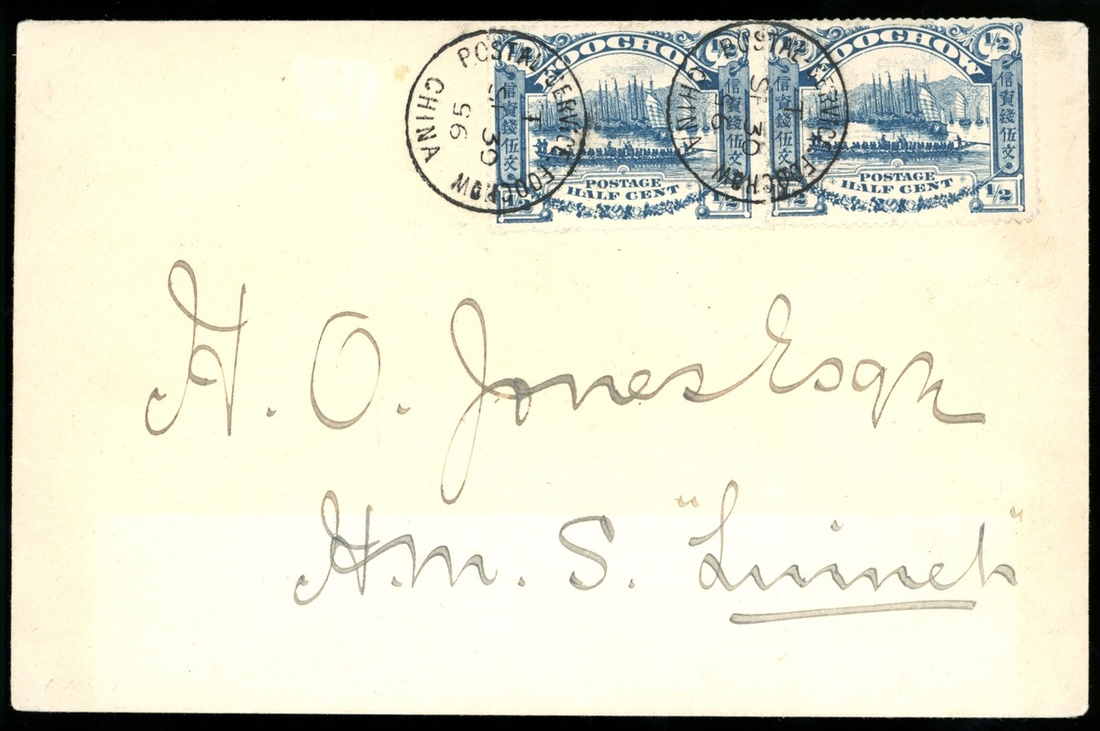 POSTAL SERVICE FOOCHOW
SP 30
95
CHINA
FOOCHOW
1/2
信資錢伍文
POSTAGE
HALF CENT
1/2 1/2
POSTAL SERVICE FOOCHOW
SP 30
95
CHINA
FOOCHOW
1/2 1/2
信資錢伍文
信資錢伍文
POSTAGE
HALF CENT
1/2 1/2
H. O. Jones Esqr
H.M.S. "Linnet"